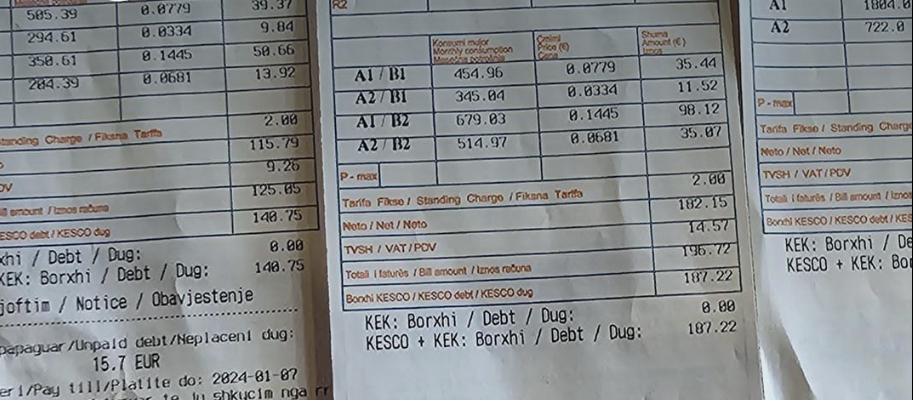 505.39 0.0779 39.37
294.61 0.0334 9.84
350.61 0.1445 50.66
204.39 0.0681 13.92
2.00
Standing Charge / Fiksna Tarifa
115.79
9.26
125.05
Bill amount / Iznos računa
140.75
KESCO debt / KESCO dug
xhi / Debt / Dug: 0.00
KEK: Borxhi / Debt / Dug: 140.75
joftim / Notice / Obavjestenje
papaguar/Unpaid debt/Neplaceni dug:
15.7 EUR
eri/Pay till/Platite do: 2024-01-07
R2
Konsumi mujor Monthly consumption Mesečna potrošnja
Çmimi Price (€) Cena
Shuma Amount (€) Iznos
A1 / B1 454.96 0.0779 35.44
A2 / B1 345.04 0.0334 11.52
A1 / B2 679.03 0.1445 98.12
A2 / B2 514.97 0.0681 35.07
P - max
Tarifa Fikse / Standing Charge / Fiksna Tarifa 2.00
Neto / Net / Neto 182.15
TVSH / VAT / PDV 14.57
Totali i faturës / Bill amount / Iznos računa 196.72
Borxhi KESCO / KESCO debt / KESCO dug 187.22
KEK: Borxhi / Debt / Dug: 0.00
KESCO + KEK: Borxhi / Debt / Dug: 187.22
A1 1804.0
A2 722.0
P - max
Tarifa Fikse / Standing Charge
Neto / Net / Neto
TVSH / VAT / PDV
Totali i faturës / Bill amount / Izno
Borxhi KESCO / KESCO debt / KES
KEK: Borxhi / De
KESCO + KEK: Bor